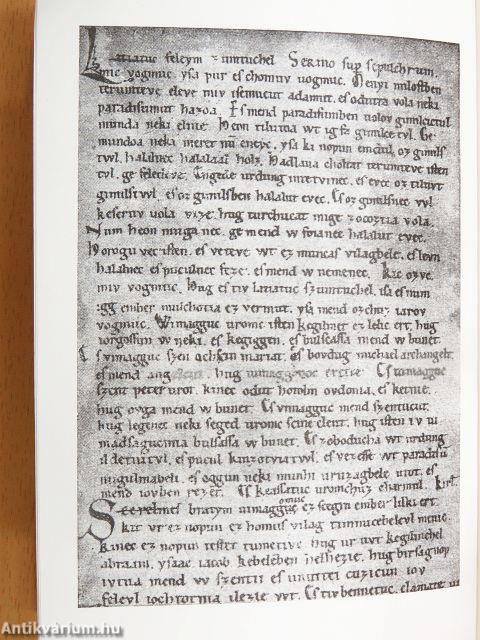 Latiatuc feleym zumtuchel Sermo sup sepulchrum.
mic vogmuc. ysa pur es chomuv uogmuc. Menyi milostben
terumteve eleve miv isemucut adamut. es odutta vola neki
paradisumut hazoa. Es mend paradisumben uolov gimilcictul
munda neki elnie. Heon tilutoa wt ig fa gimilce tvl. Ge
mundoa neki meret nū eneyc. ysa ki nopun emdul oz gimils
twl. halalnec halalaal holz. Hadlaua choltat terumteve isten
tvl. ge feledeve. Engede urdung intetvinec. es evec oz tiluvt
gimilstwl. es oz gimilsben halalut evec. Es oz gimilsnec vvl
keseruv uola vize. hug turchucat mige zocoztia vola.
Num heon muga nec. ge mend w foianec halalut evec.
Horogu vec isten. es veteve wt ez muncas vilagbele. es levn
halalnec es puculnec feze. es mend w nemenec. Kic ozvc.
miv vogmuc. Hug es tiv latiatuv szumtuchel. isa es num
igg ember mulchotia ez vermut. ysa mend ozchuz iarov
vogmuc. Wimagguc uromc isten kegilmet ez lelic ert. hug
iorgossun w neki. es kegiggen. es bulsassa mend w bunet.
Es vimagguc szen achscin mariat. es bovdug michael archangelt
es mend angelcut. hug uimaggonoc erette. Es uimagguc
szent peter urot. kinec odut hotolm ovdonia. es ketnie.
hug ovga mend w bunet. Es vimagguc mend szentucut.
hug legenec neki seged uromc scine eleut. hug isten iv ui
madsagucmia bulsassa w bunet. Es zoboducha wt urdung
ildetuitvl. es pucul kinzotviatwl. es vezesse wt paradisu
nugulmabeli. es oggun neki munhi uruzagbele utot. es
mend iovben rezet. Es keassatuc uromchuz charmul. Kirl.
Scerelmes bratym uimaggomuc ez scegin ember lilki ert.
kit vr ez nopun ez homus vilag timnucebelevl mente.
kinec ez nopun testet tumetivc. hug ur uvt kegilmehel
abraam. ysaac. iacob. kebeleben helhezie. hug birsagnop
ivtva mend w szentii es unuttei cuzicun iov
feleul iochtotnia ilezie wt. Es tiv bennetuc. clamate III
Antikvárium.hu